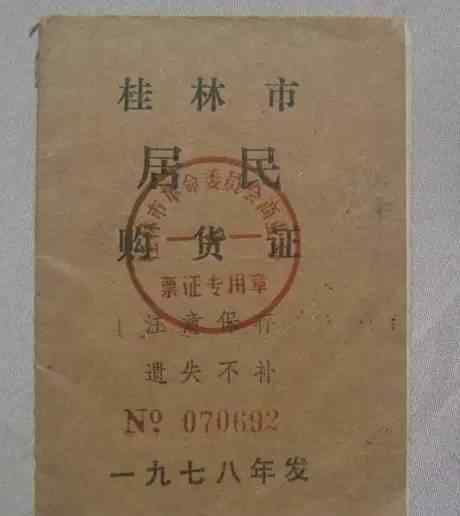 桂林市
居民
购货证
桂林市革命委员会商业
票证专用章
注意保存
遗失不补
№ 070692
一九七八年发